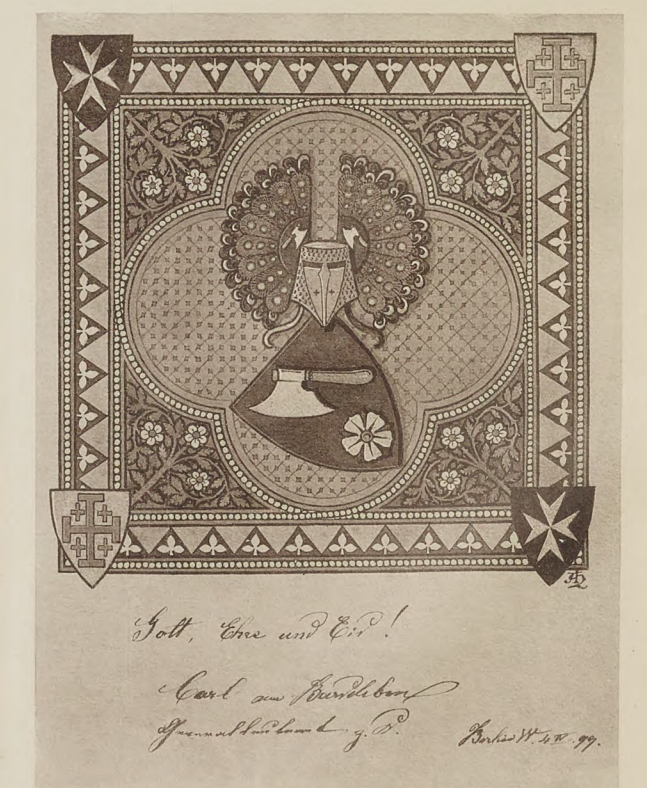 Gott, Ehre und Eid!
Carl von Bardeleben
Generalleutnant z. D.
Berlin W. 99.